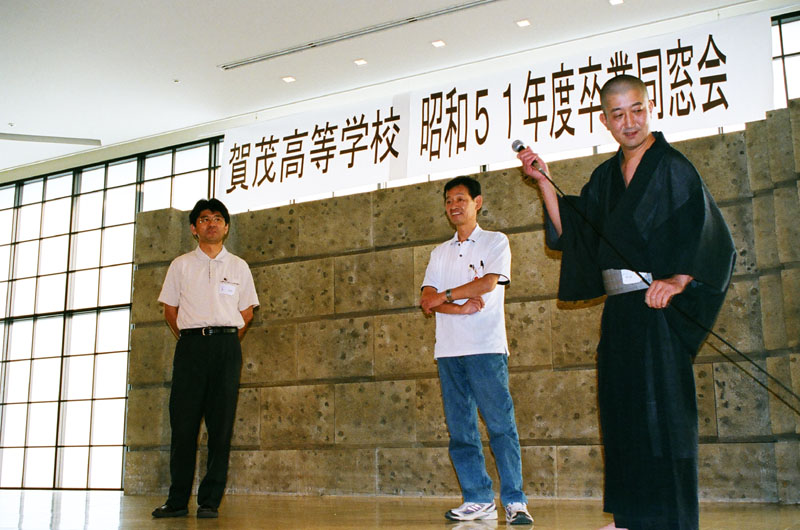 賀茂高等学校 昭和51年度卒業同窓会